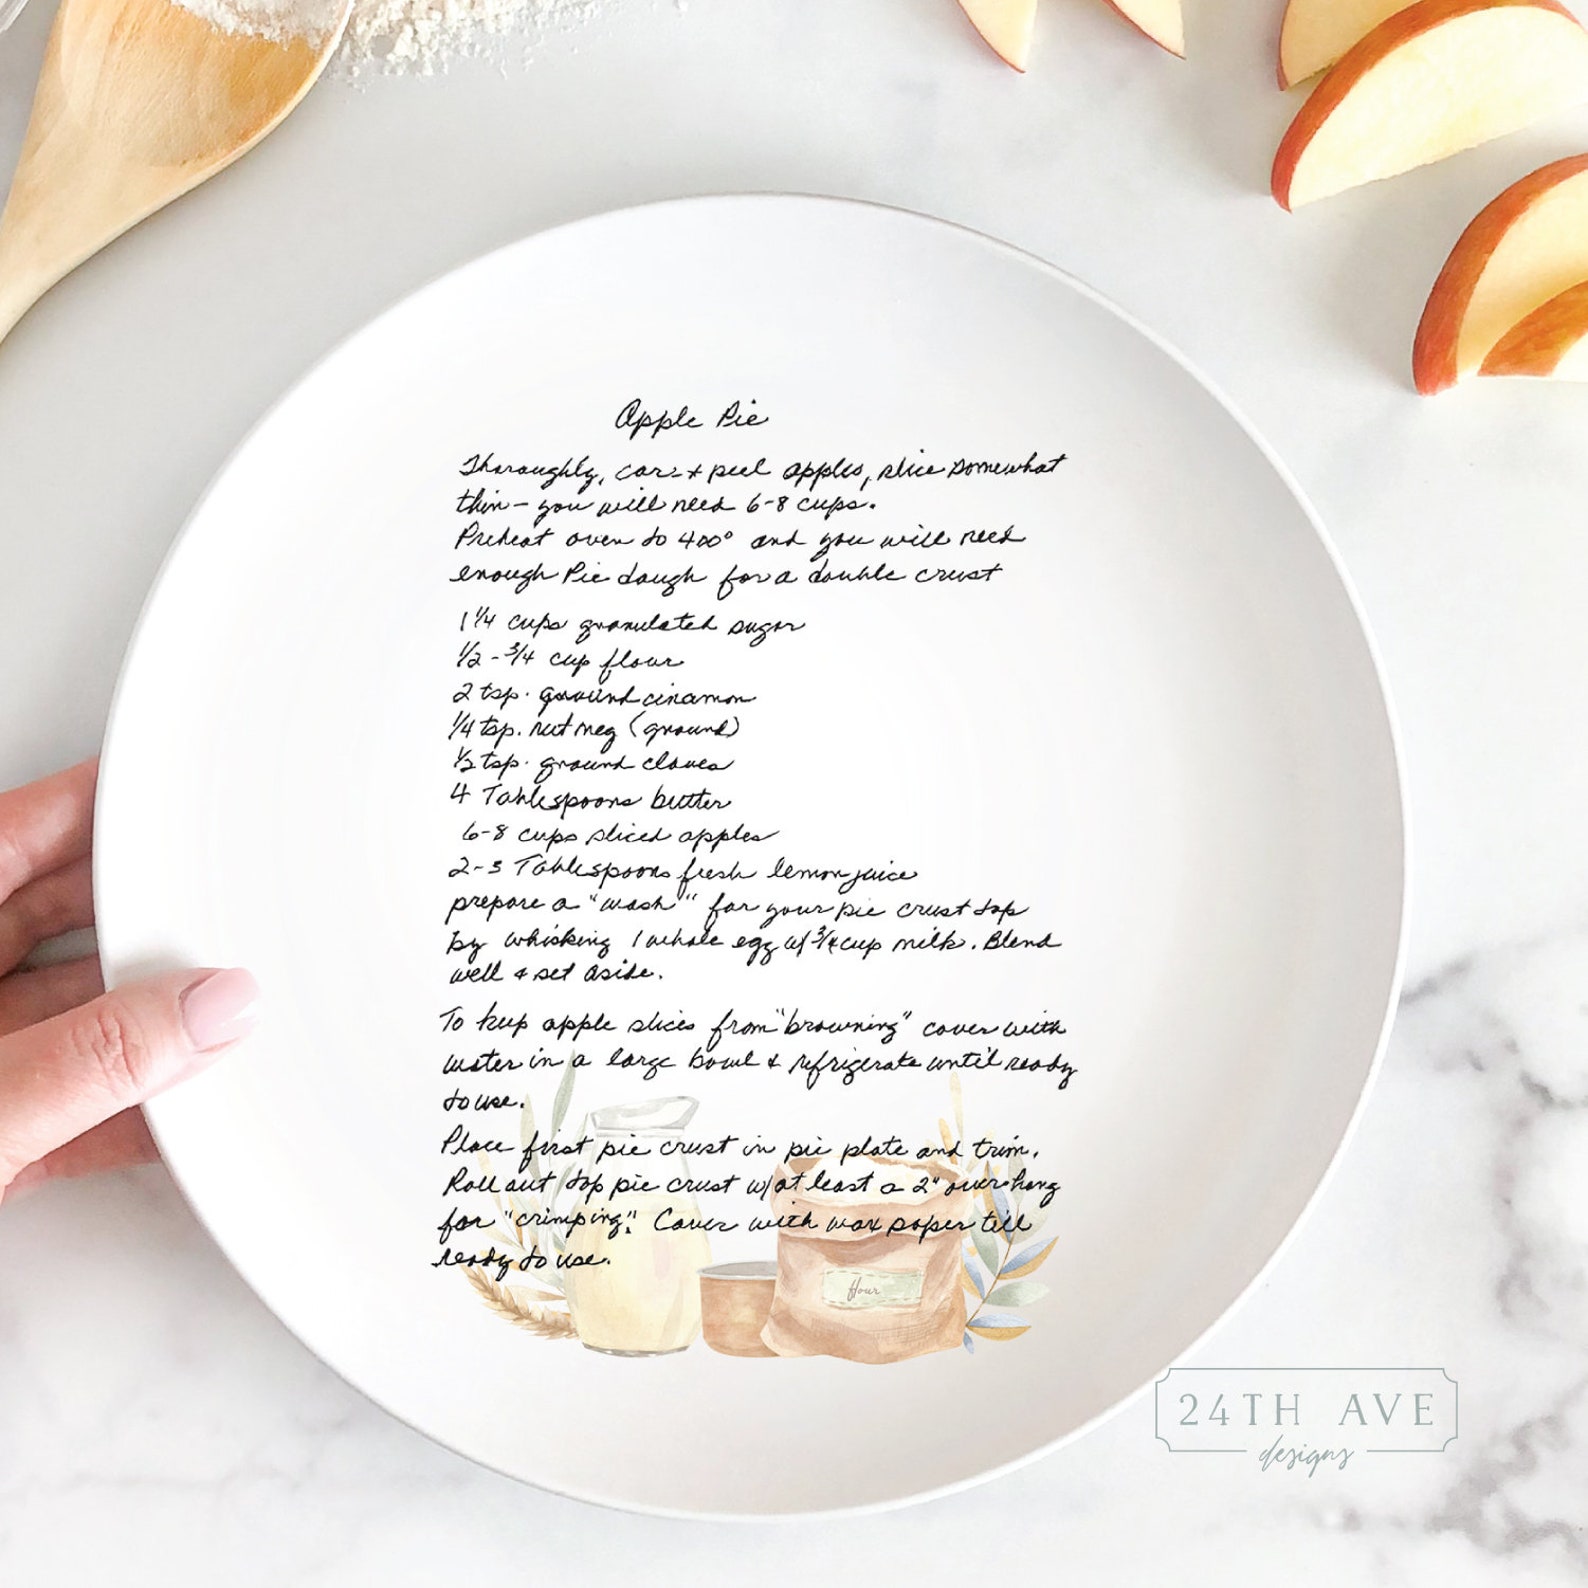 Apple Pie
Thoroughly, core + peel apples, slice somewhat
thin - you will need 6-8 cups.
Preheat oven to 400° and you will need
enough Pie dough for a double crust
1 1/4 cups granulated sugar
1/2 - 3/4 cup flour
2 tsp. ground cinamon
1/4 tsp. nutmeg (ground)
1/2 tsp. ground cloves
4 Tablespoons butter
6-8 cups sliced apples
2-3 Tablespoons fresh lemon juice
prepare a "wash" for your pie crust top
by whisking 1 whole egg w/ 3/4 cup milk. Blend
well + set aside.
To keep apple slices from "browning" cover with
water in a large bowl + refrigerate until ready
to use.
Place first pie crust in pie plate and trim.
Roll out top pie crust w/ at least a 2" over-hang
for "crimping". Cover with wax paper till
ready to use.
flour
24TH AVE
designs